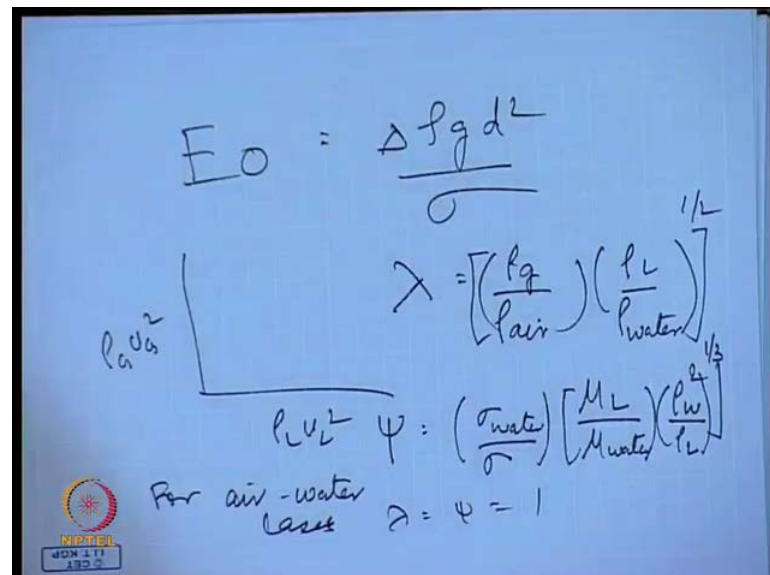 Eo = Δρgd² / σ
λ = [(ρg / ρair) (ρL / ρwater)]^1/2
ρG υG²
ρL υL²
ψ = (σwater / σ) [μL / μwater (ρw / ρL)²]^1/3
For air-water cases λ = ψ = 1
NPTEL
© CET
I.I.T. KGP